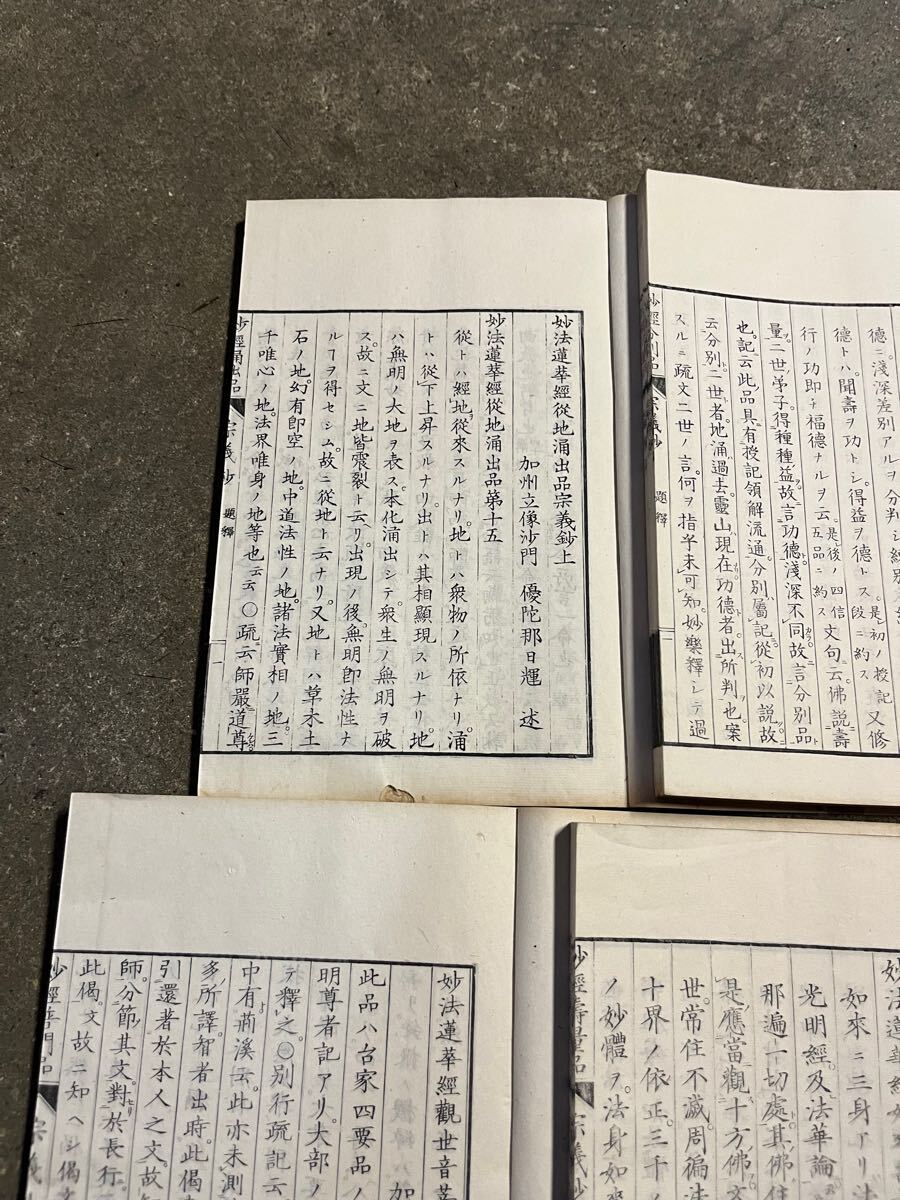 妙法蓮華經從地涌出品宗義鈔上
加州立像沙門 優陀那日輝 述
妙法蓮華經從地涌出品第十五
從トハ經地從來スルナリ。地トハ衆物ノ所依ナリ。涌
トハ從下上昇スルナリ。出トハ其相顯現スルナリ。地
ハ無明ノ大地ヲ表ス。本化涌出シテ衆生ノ無明ヲ破
ス。故ニ文ニ地皆震裂ト云リ。出現ノ後。無明即法性ナ
ルヿヲ得セシム。故ニ從地ト云ナリ。又地トハ草木土
石ノ地。幻有即空ノ地。中道法性ノ地。諸法實相ノ地。三
千唯心ノ地。法界唯身ノ地等也云云○疏云師嚴道尊
妙經涌出品 宗義鈔 題釋 一
德ニ淺深差別アルヲ分判シ
德トハ。聞壽ヲ功トシ。得益ヲ德トス是初ノ授記段ニ約ス又修
行ノ功即チ福德ナルヲ云是後ノ四信五品ニ約ス文句云佛說壽
量二世弟子得種種益故言功德淺深不同故言分別品
也。記云此品具有授記領解流通分別屬記從初以說故
云分別二世者地涌過去靈山現在功德者出所判也。案
スルニ疏文二世ノ言。何ヲ指乎未可知。妙樂釋シテ過
妙經分別品 宗義鈔 題釋 一
妙法蓮華經觀世音菩
加
此品ハ台家四要品ノ
明尊者記アリ。大部ノ
テ釋之○別行疏記云
中有荊溪云此亦未測
多所譯智者出時此偈
引還著於本人之文故
師分節其文對於長行
此偈文故ニ知ヘシ偈
妙經普門品 宗義
如來ニ三身アリ法
光明經及法華論
那遍一切處其佛住
是應當觀十方佛
世常住不滅周徧法
十界ノ依正三千
ノ妙體ヲ。法身如來
妙經壽量品 宗義鈔